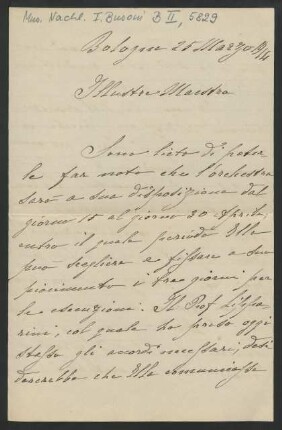 Mus. Nachl. F. Busoni B II, 5829
Bologna 25 Marzo
Illustre Maestro
Sono lieto di poter
le far noto che l'orchestra
sarà a sua disposizione dal
giorno 15 al giorno 30 Aprile,
entro il quale periodo Ella
può scegliere e fissare a suo
piacimento i tre giorni per
le esecuzioni. Il Prof.
col quale ho preso oggi
stesso gli accordi necessari, desi
dererebbe che Ella comunicasse